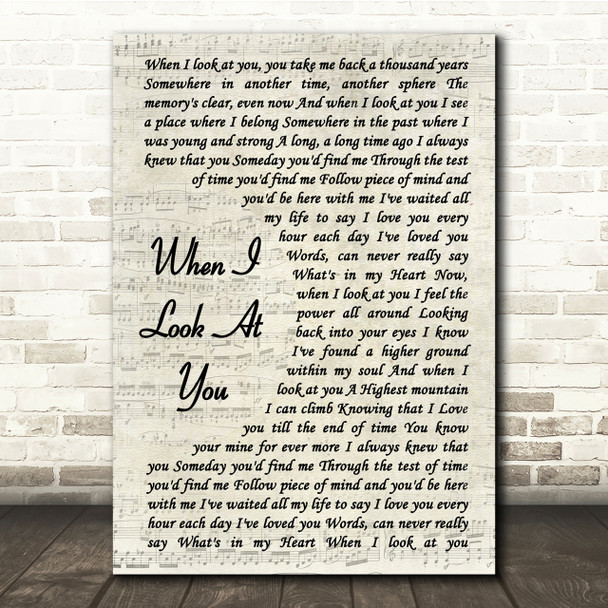 When I look at you, you take me back a thousand years
Somewhere in another time, another sphere The
memory's clear, even now And when I look at you I see
a place where I belong Somewhere in the past where I
was young and strong A long, a long time ago I always
knew that you Someday you'd find me Through the test
of time you'd find me Follow piece of mind and
you'd be here with me I've waited all
my life to say I love you every
hour each day I've loved you
Words, can never really say
What's in my Heart Now,
when I look at you I feel the
power all around Looking
back into your eyes I know
I've found a higher ground
within my soul And when I
look at you A Highest mountain
I can climb Knowing that I Love
you till the end of time You know
your mine for ever more I always knew that
you Someday you'd find me Through the test of time
you'd find me Follow piece of mind and you'd be here
with me I've waited all my life to say I love you every
hour each day I've loved you Words, can never really
say What's in my Heart When I look at you
When I
Look At
You